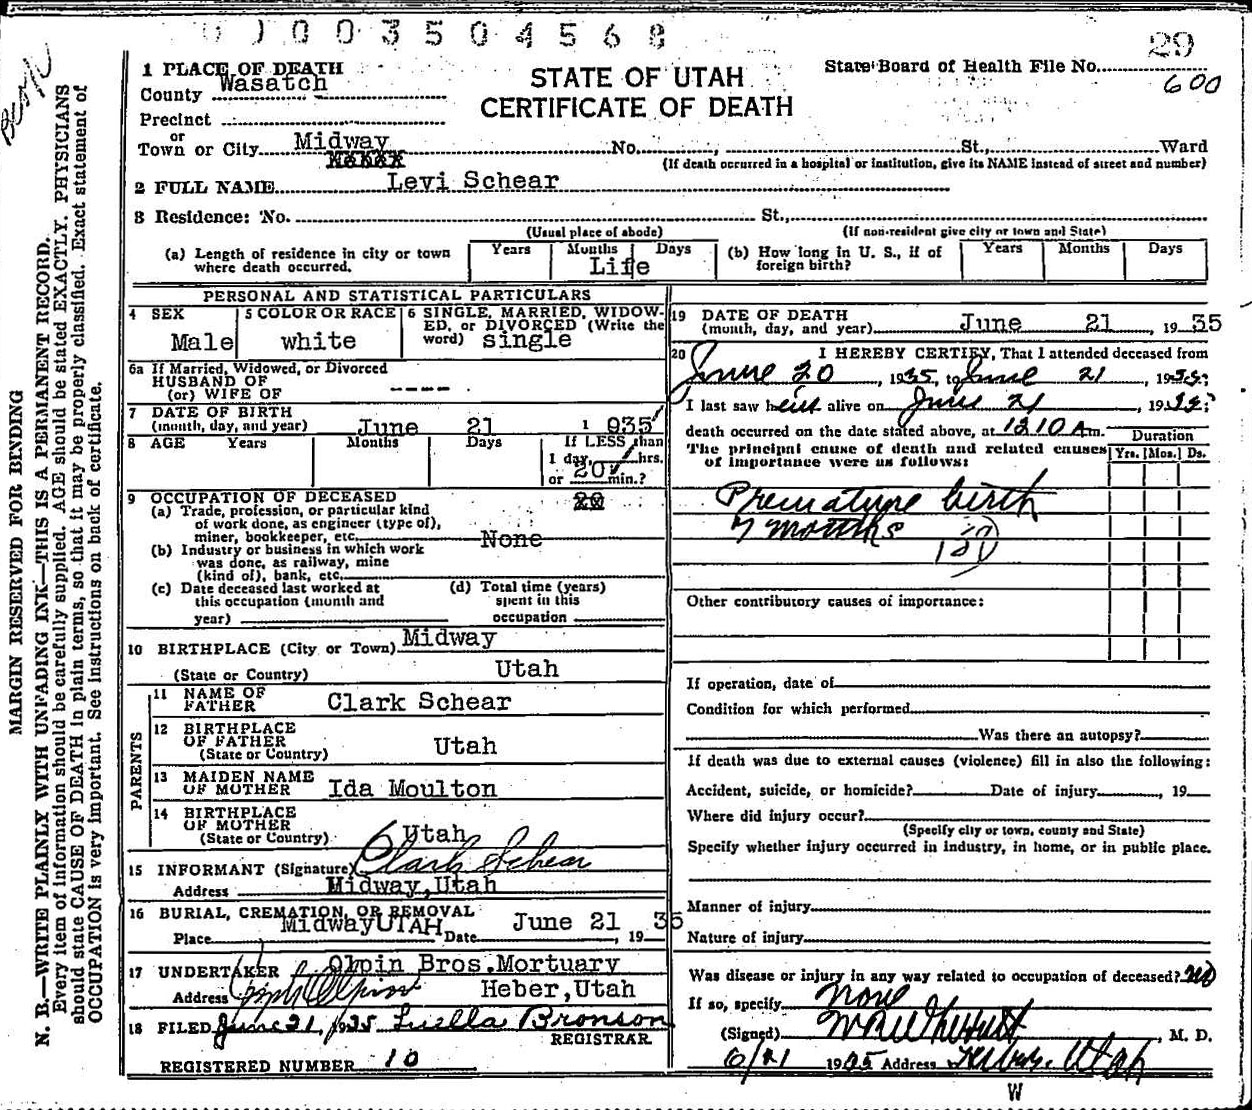 0 0 0 3 5 0 4 5 6 8
29
1 PLACE OF DEATH
County Wasatch
STATE OF UTAH
CERTIFICATE OF DEATH
State Board of Health File No.
600
Precinct
or
Town or City Midway No. , St., Ward
(If death occurred in a hospital or institution, give its NAME instead of street and number)
2 FULL NAME Levi Schear
3 Residence: No. St.,
(Usual place of abode) (If non-resident give city or town and State)
(a) Length of residence in city or town where death occurred. Years Months Days Life
(b) How long in U. S., if of foreign birth? Years Months Days
PERSONAL AND STATISTICAL PARTICULARS
4 SEX Male
5 COLOR OR RACE white
6 SINGLE, MARRIED, WIDOW-
ED, or DIVORCED (Write the
word) single
6a If Married, Widowed, or Divorced
HUSBAND OF
(or) WIFE OF ----
7 DATE OF BIRTH
(month, day, and year) June 21 1 935
8 AGE Years Months Days If LESS than
1 day, hrs.
or 20 min.?
20
9 OCCUPATION OF DECEASED
(a) Trade, profession, or particular kind
of work done, as engineer (type of),
miner, bookkeeper, etc. None
(b) Industry or business in which work
was done, as railway, mine
(kind of), bank, etc.
(c) Date deceased last worked at
this occupation (month and
year)
(d) Total time (years)
spent in this
occupation
10 BIRTHPLACE (City or Town) Midway
(State or Country) Utah
PARENTS
11 NAME OF
FATHER Clark Schear
12 BIRTHPLACE
OF FATHER
(State or Country) Utah
13 MAIDEN NAME
OF MOTHER Ida Moulton
14 BIRTHPLACE
OF MOTHER
(State or Country) Utah
15 INFORMANT (Signature) Clark Schear
Address Midway, Utah
16 BURIAL, CREMATION, OR REMOVAL
Place Midway UTAH Date June 21, 19 35
17 UNDERTAKER Olpin Bros. Mortuary
Address Heber, Utah
18 FILED June 21, 1935 Luella Bronson
REGISTRAR
REGISTERED NUMBER 10
19 DATE OF DEATH
(month, day, and year) June 21, 19 35
20 I HEREBY CERTIFY, That I attended deceased from
June 20, 1935, to June 21, 1935;
I last saw h alive on June 21, 1935;
death occurred on the date stated above, at 1210 A m.
The principal cause of death and related causes
of importance were as follows:
Duration
Yrs. Mos. Ds.
Premature birth
7 months
159
Other contributory causes of importance:
If operation, date of
Condition for which performed
Was there an autopsy?
If death was due to external causes (violence) fill in also the following:
Accident, suicide, or homicide? Date of injury , 19
Where did injury occur?
(Specify city or town, county and State)
Specify whether injury occurred in industry, in home, or in public place.
Manner of injury
Nature of injury
Was disease or injury in any way related to occupation of deceased? no
If so, specify None
(Signed) , M. D.
6/21 1935 Address Heber, Utah
W
MARGIN RESERVED FOR BINDING
N. B.—WRITE PLAINLY WITH UNFADING INK—THIS IS A PERMANENT RECORD.
Every item of information should be carefully supplied. AGE should be stated EXACTLY. PHYSICIANS
should state CAUSE OF DEATH in plain terms, so that it may be properly classified. Exact statement of
OCCUPATION is very important. See instructions on back of certificate.